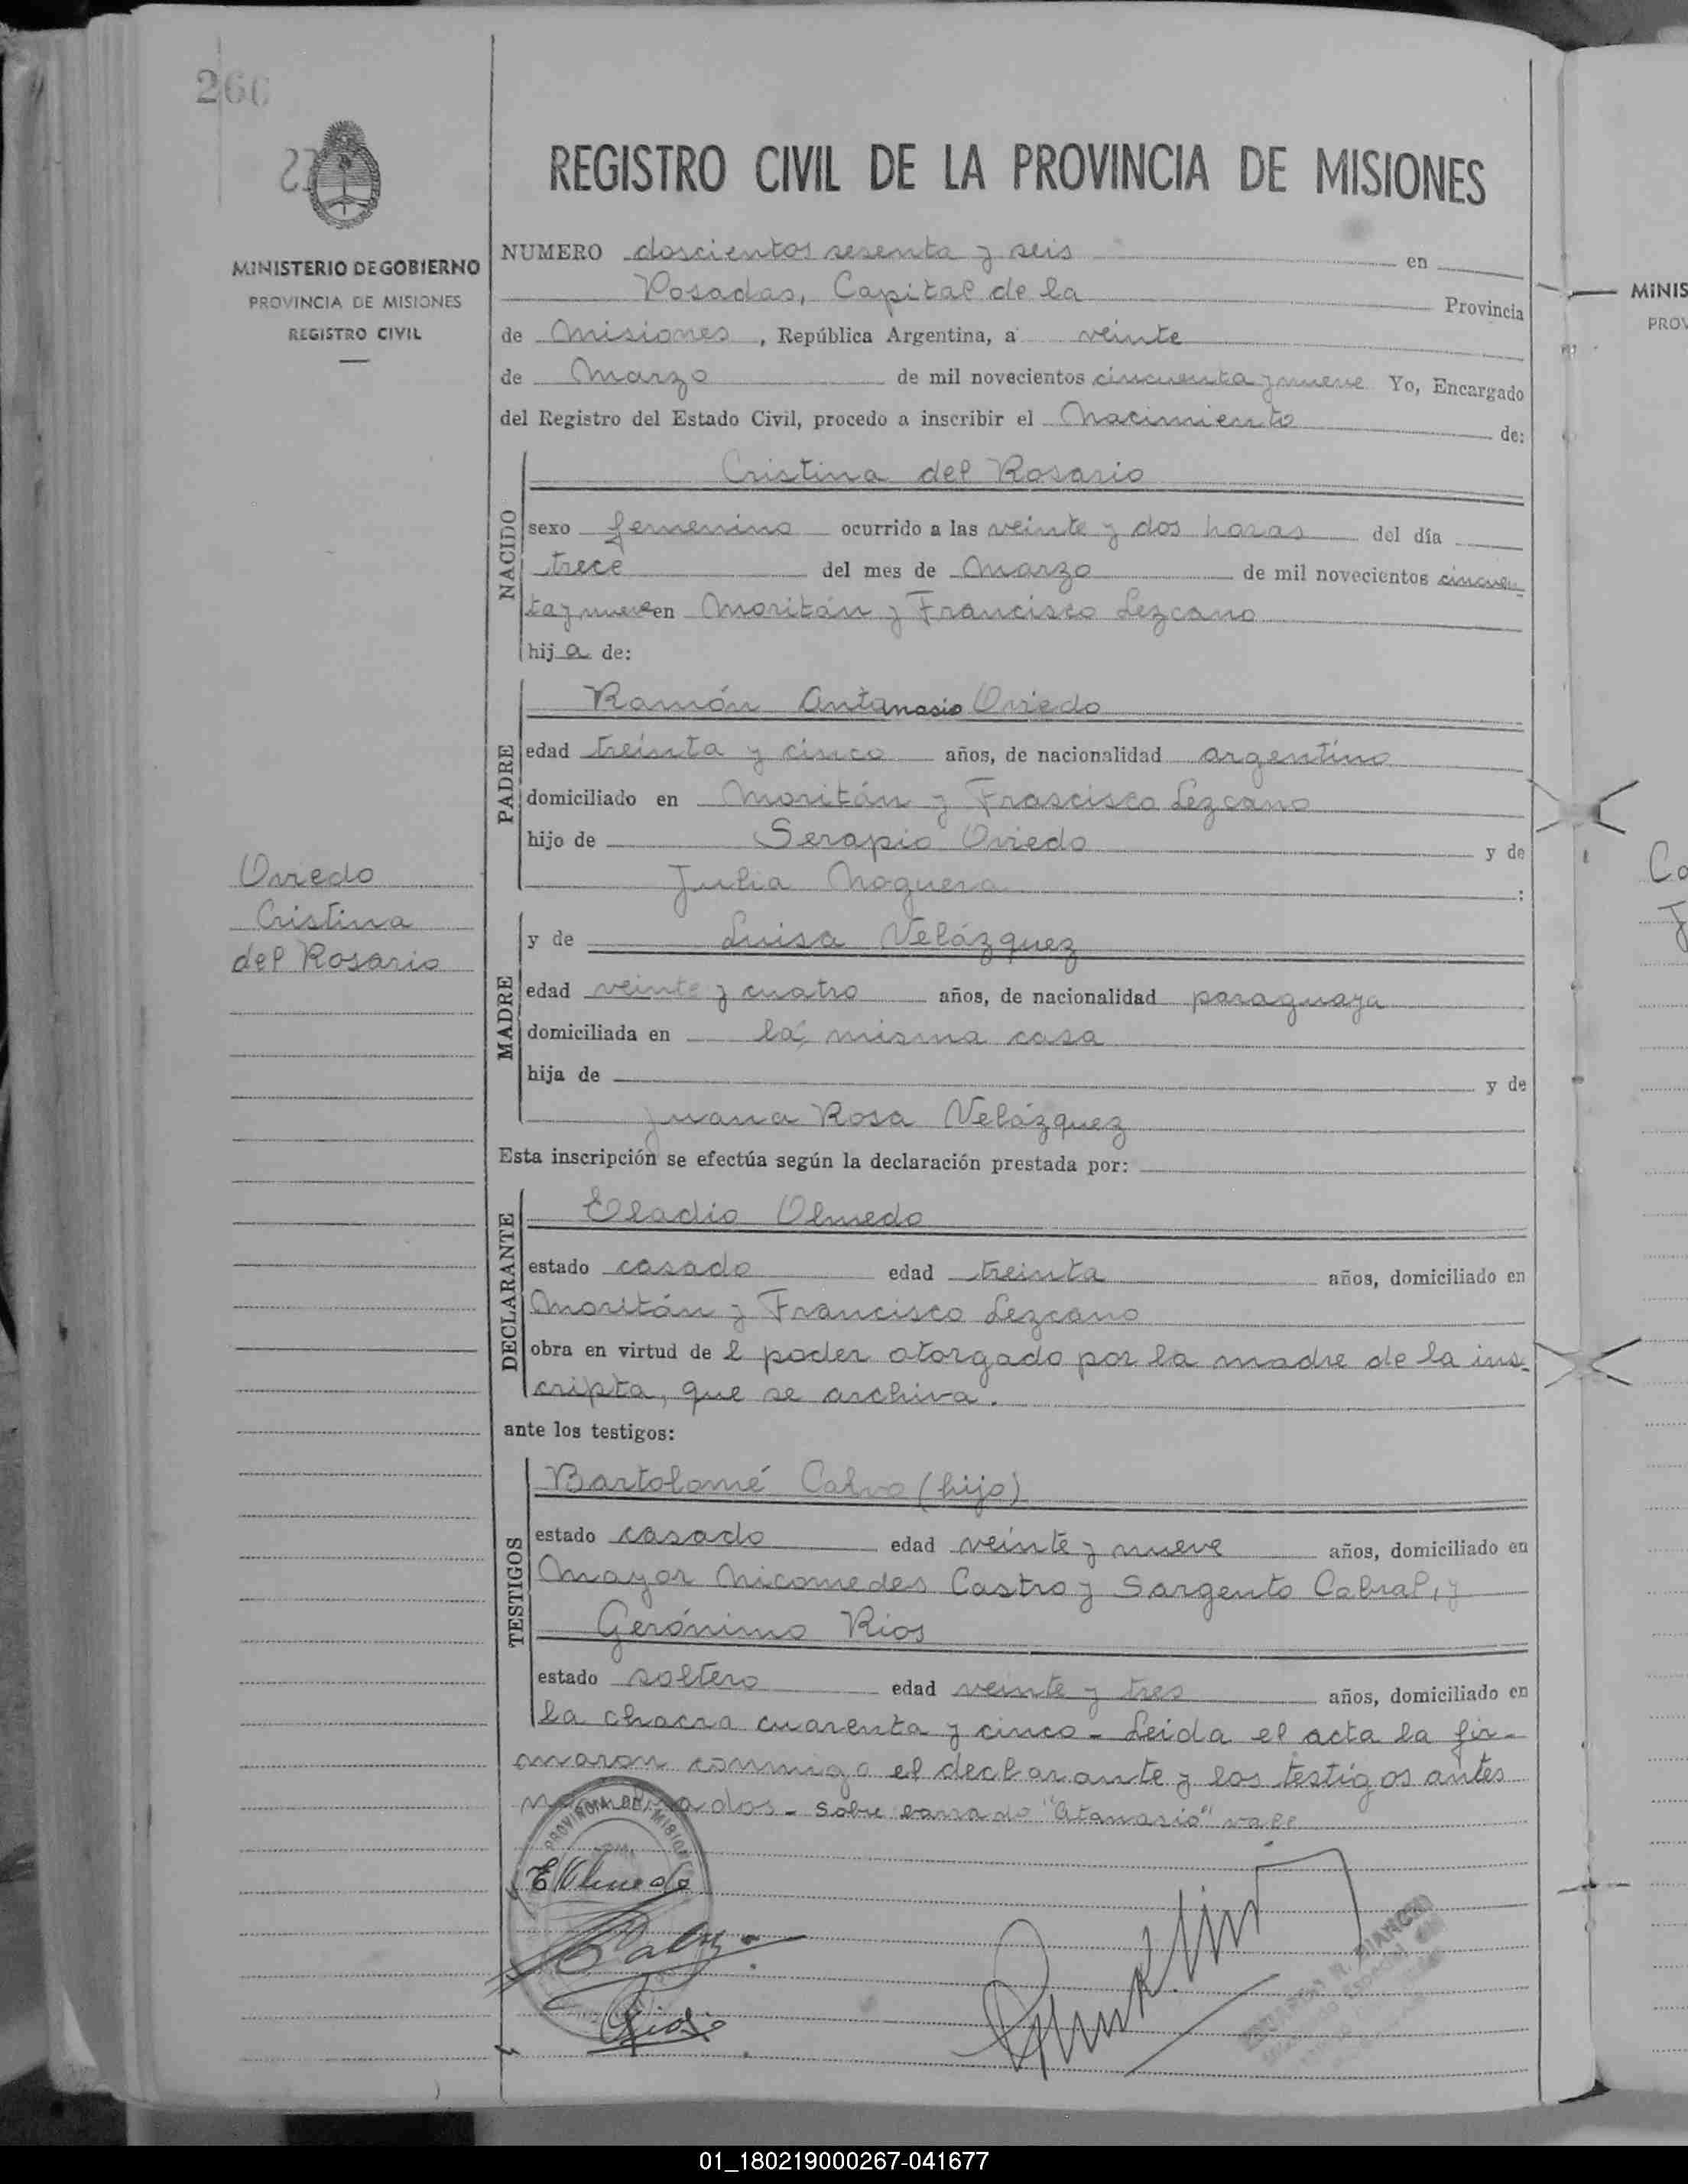 266
REGISTRO CIVIL DE LA PROVINCIA DE MISIONES
MINISTERIO DE GOBIERNO
PROVINCIA DE MISIONES
REGISTRO CIVIL
NUMERO doscientos sesenta y seis en
Posadas, Capital de la Provincia
de Misiones, República Argentina, a veinte
de Marzo de mil novecientos cincuenta y nueve Yo, Encargado
del Registro del Estado Civil, procedo a inscribir el Nacimiento de:
NACIDO
Cristina del Rosario
sexo femenino ocurrido a las veinte y dos horas del día
trece del mes de Marzo de mil novecientos cincuen
ta y nueve en Moritán y Francisco Lezcano
hija de:
PADRE
Ramón Antanasio Oviedo
edad treinta y cinco años, de nacionalidad argentino
domiciliado en Moritán y Frascisco Lezcano
hijo de Serapio Oviedo y de
Julia Noguera :
Oviedo
Cristina
del Rosario
MADRE
y de Luisa Velázquez
edad veinte y cuatro años, de nacionalidad paraguaya
domiciliada en la misma casa
hija de y de
Juana Rosa Velázquez
Esta inscripción se efectúa según la declaración prestada por:
DECLARANTE
Eladio Olmedo
estado casado edad treinta años, domiciliado en
Moritán y Francisco Lezcano
obra en virtud de l poder otorgado por la madre de la ins-
cripta, que se archiva.
ante los testigos:
TESTIGOS
Bartolomé Calvo (hijo)
estado casado edad veinte y nueve años, domiciliado en
Mayor Nicomedes Castro y Sargento Cabral, y
Gerónimo Rios
estado soltero edad veinte y tres años, domiciliado en
la chacra cuarenta y cinco - Leida el acta la fir-
maron conmigo el declarante y los testigos antes
- Sobre barrado "Atanasio" vale
PROVINCIA DE MISIONES
E Olmedo
Calvo
Rios
MINIS
PROV
01_180219000267-041677